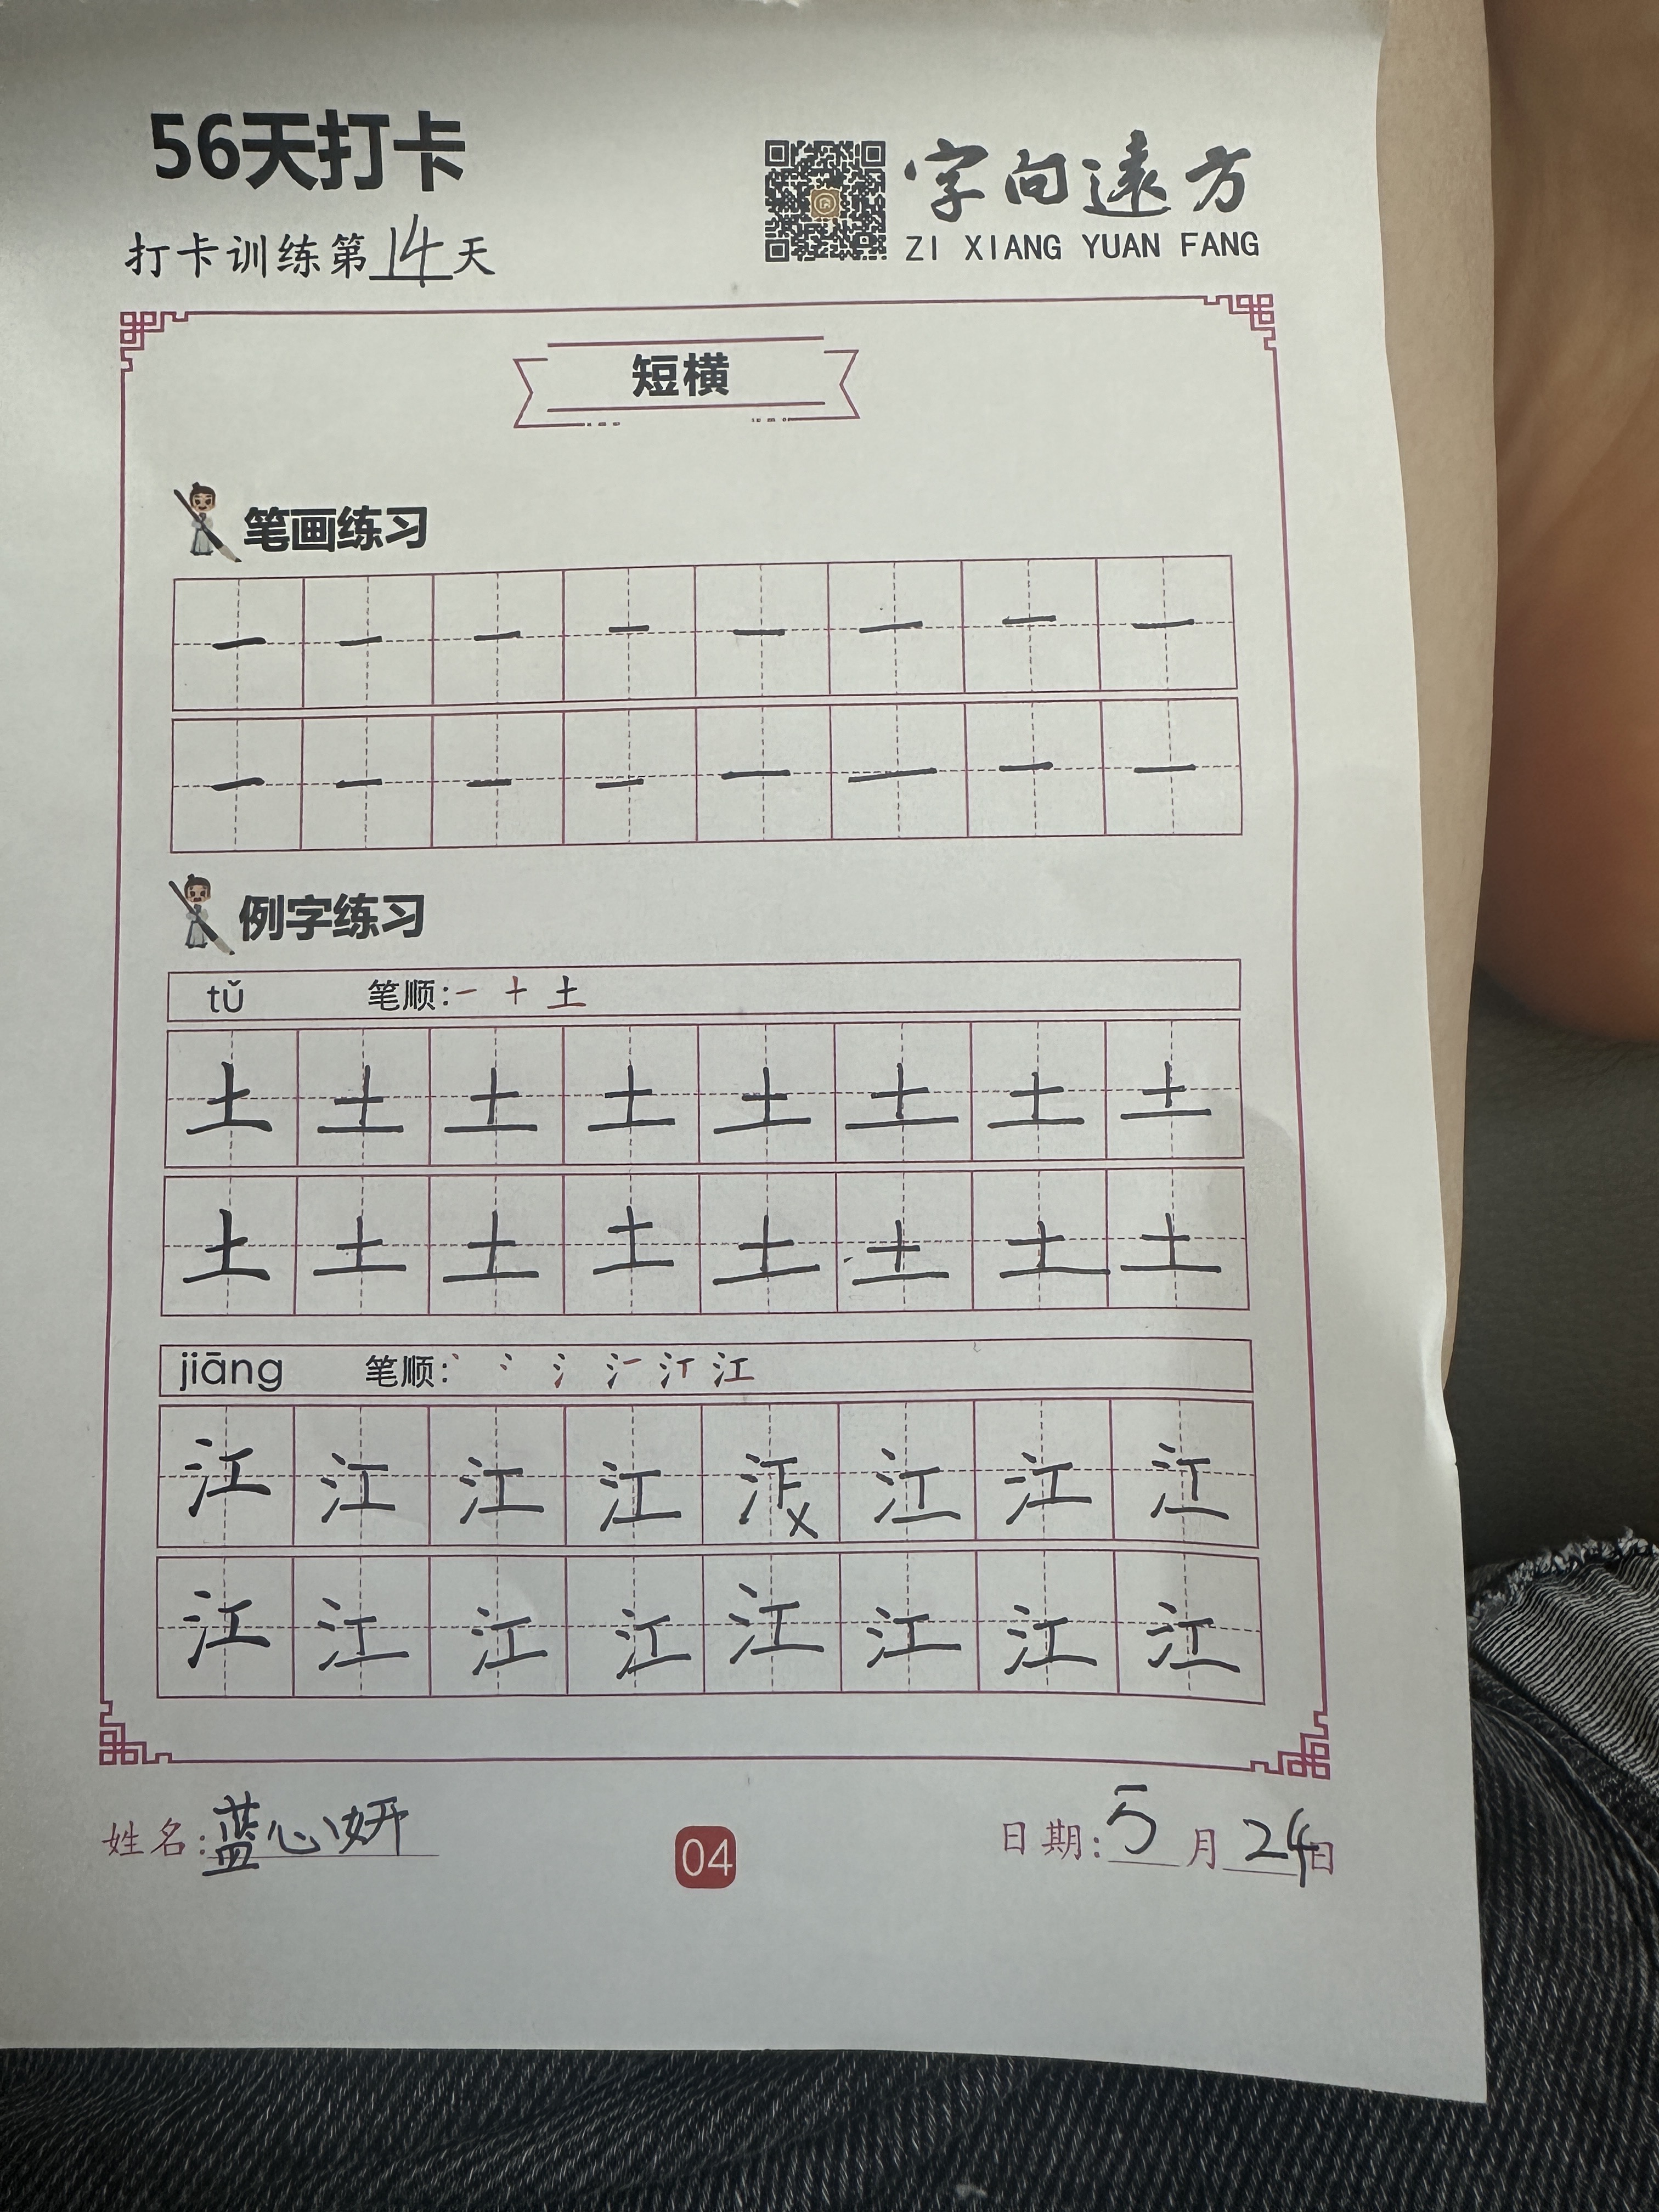 56天打卡
字向遠方
ZI XIANG YUAN FANG
打卡训练第14天
短横
笔画练习
一 一 一 一 一 一 一 一
一 一 一 一 一 一 一 一
例字练习
tǔ 笔顺: 一 十 土
土 土 土 土 土 土 土 土
土 土 土 土 土 土 土 土
jiāng 笔顺: 丶 冫 氵 江
江 江 江 江 江 江 江
江 江 江 江 江 江 江 江
姓名: 蓝心妍
04
日期: 5月24日